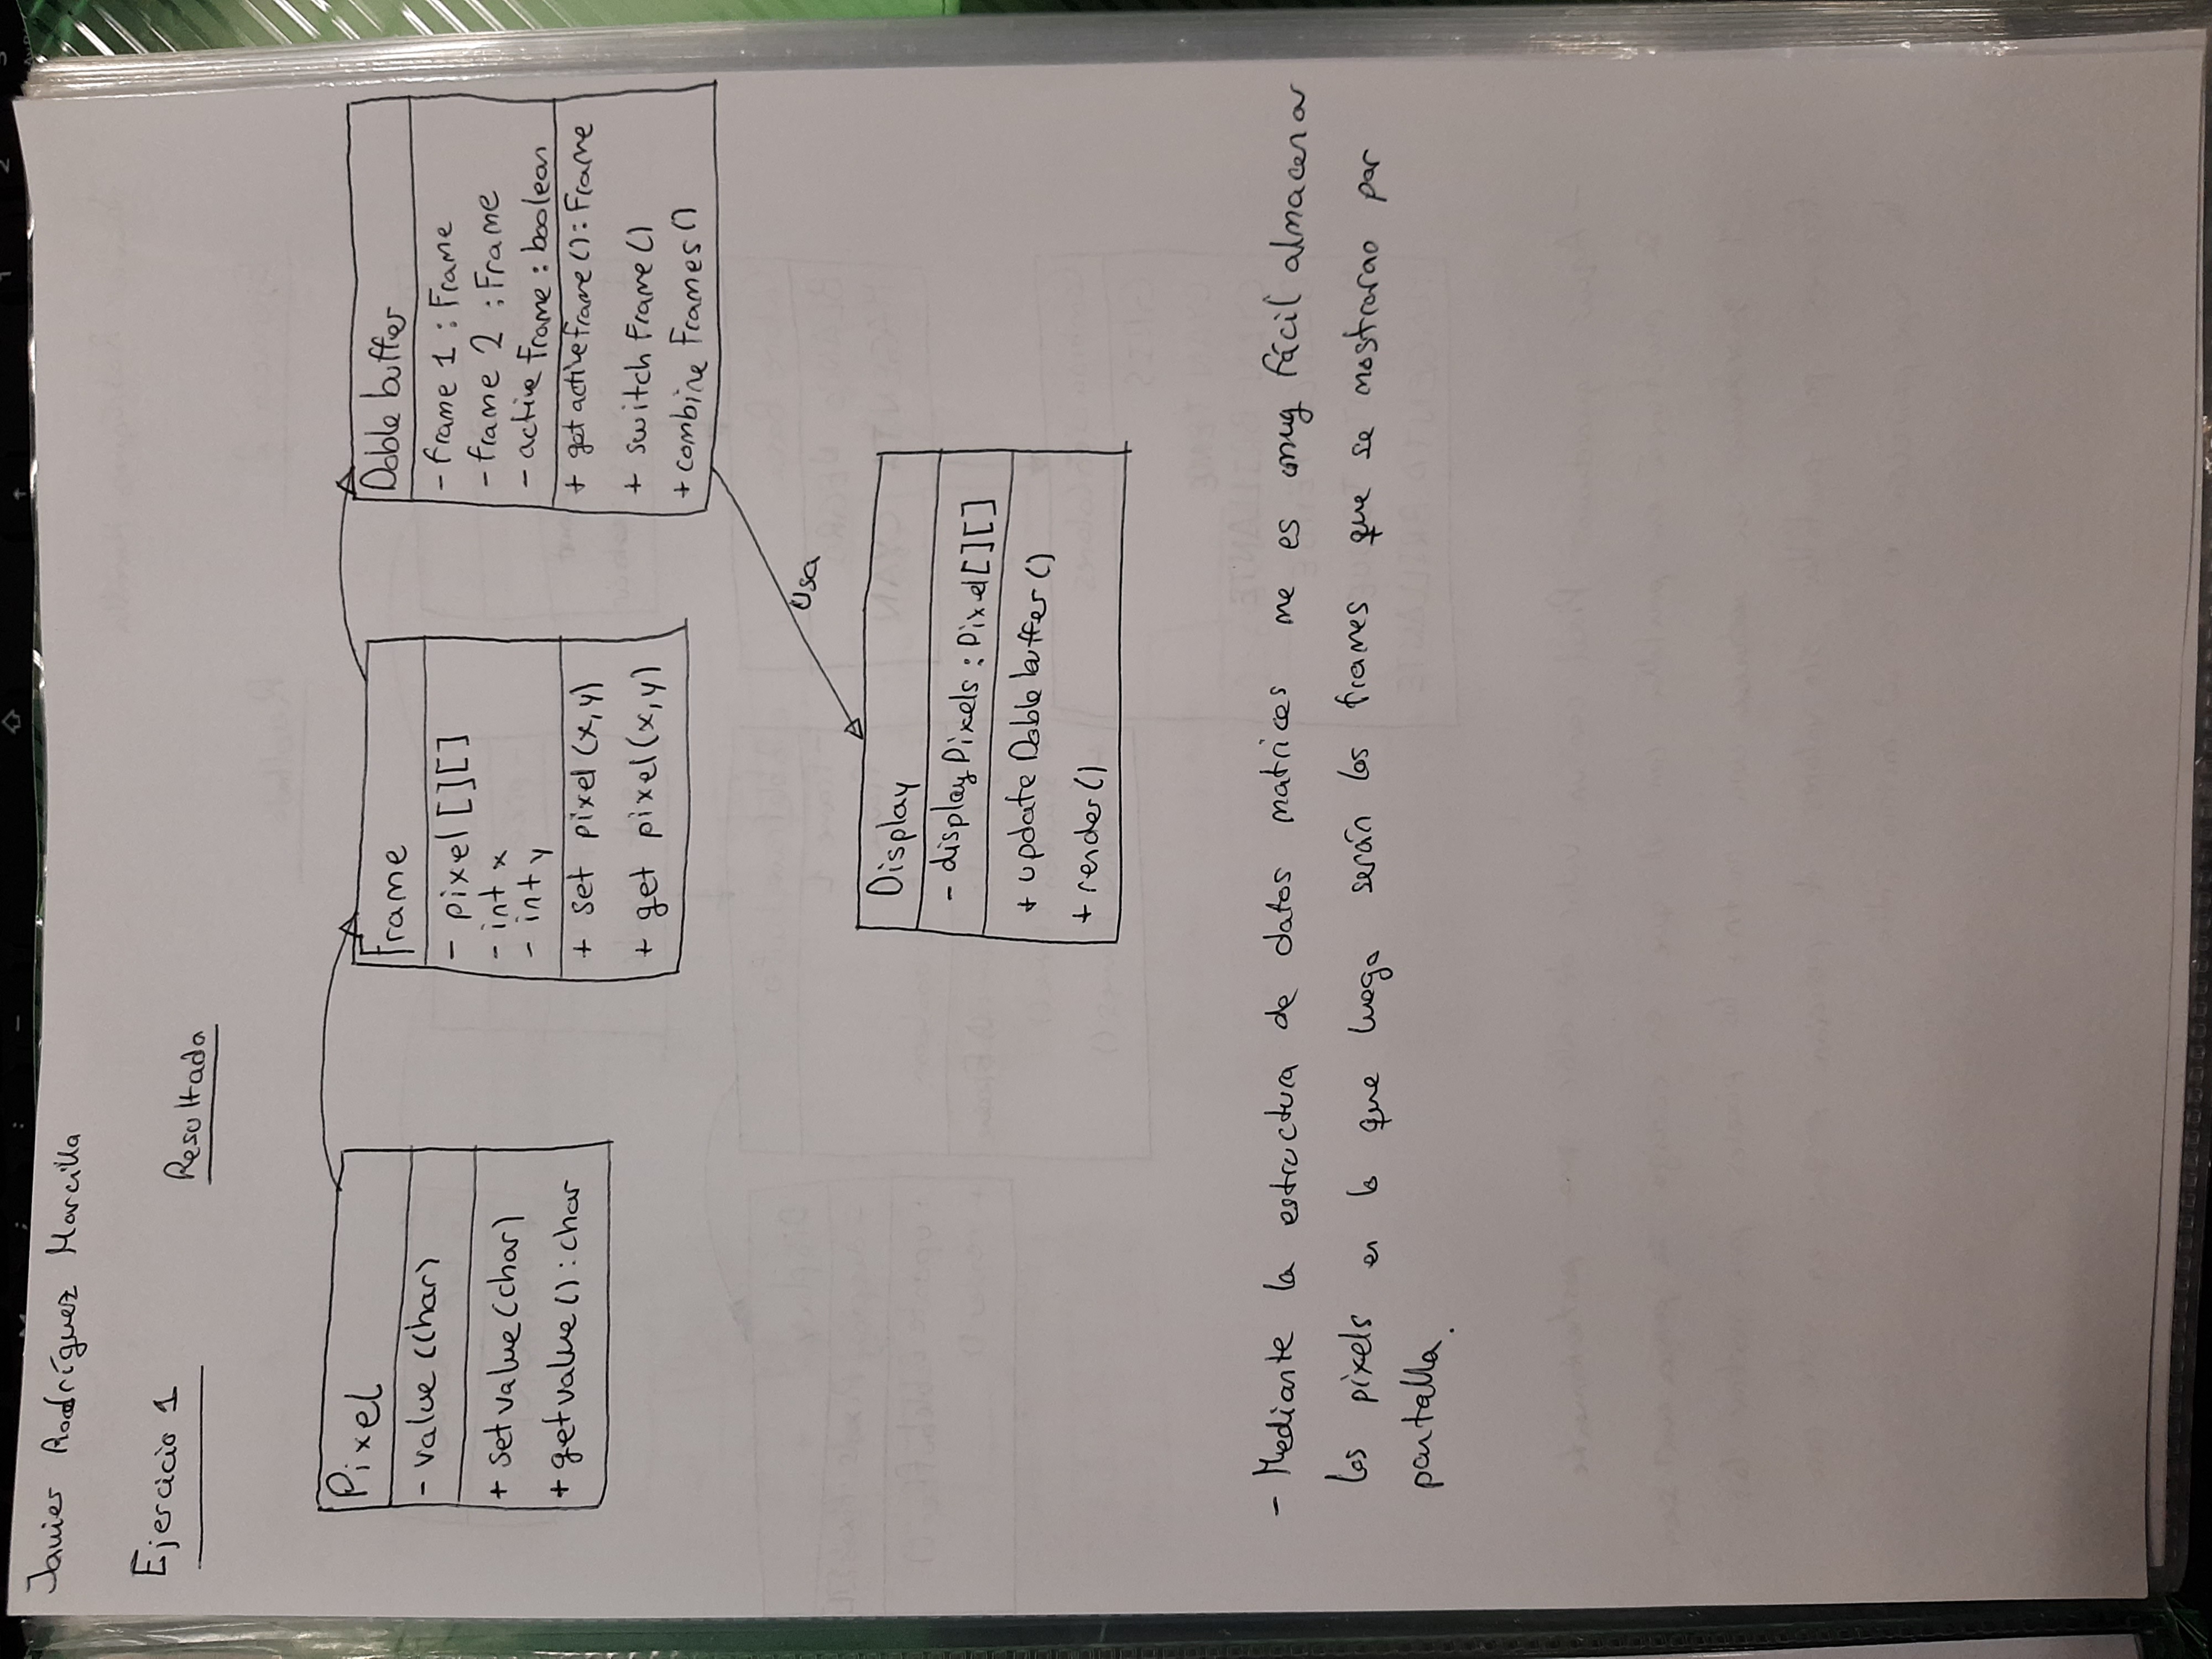 Javier Rodríguez Marcilla
Ejercicio 1
Resultado
Pixel
- value (char)
+ setvalue (char)
+ getvalue () : char
Frame
- pixel [][]
- int x
- int y
+ set pixel (x, y)
+ get pixel (x, y)
Doble buffer
- frame 1 : Frame
- frame 2 : Frame
- active frame : boolean
+ getactiveframe () : Frame
+ switch Frame ()
+ combine Frames ()
Usa
Display
- displayPixels : Pixel [][]
+ update Doble buffer ()
+ render ()
- Mediante la estructura de datos matrices me es muy fácil almacenar
los pixels en lo que luego serán los frames que se mostrarao por
pantalla.